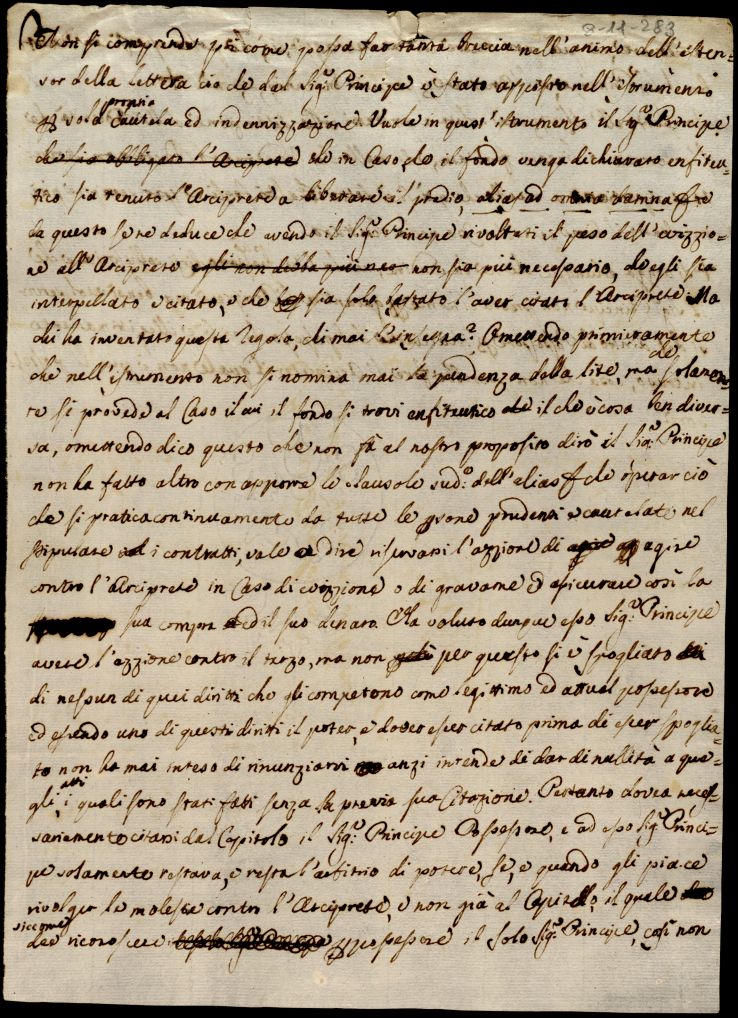 2-11-283
Non si comprende poi come possa far tanta breccia nell'animo dell'Esten=
sor della lettera ciò che dal Sig.r Principe è stato apposto nell'Istrumento
sola propria cautela ed indennizzazione. Vuole in quest'istrumento il Sig.r Principe
che sia obbligato l'Arciprete che in Caso, che il fondo venga dichiarato enfiteu=
tico sia tenuto l'Arciprete a liberare il predio, alias ad omnia damna
da questo se ne deduce che avendo il Sig.r Principe rivoltati il peso dell'evizzio=
ne all'Arciprete egli non debba più non sia più necesario, ch'egli sia
interpellato e citato, e che sia solo bastato l'aver citato l'Arciprete. Ma
chi ha inventato questa regola, chi mai l'insegna? Omettendo primieramente
che nell'istrumento non si nomina mai la pendenza della lite, ma che solamen=
te si provede al Caso il cui il fondo si trovi enfiteutico il che è cosa ben diver=
sa, omettendo dico questo che non fà al nostro proposito dirò il Sig.r Principe
non ha fatto altro con apporre le clausole sud.e dell'alias che operar ciò
che si pratica continuamente da tutte le psone prudenti e cautelate nel
stipulare i contratti, vale a dire riservarsi l'azzione di agire
contro l'Arciprete in Caso di evizzione o di gravame ed assicurare così la
sua compra ed il suo denaro. Ha voluto dunque esso Sig.r Principe
avere l'azzione contro il terzo, ma non per questo si è spogliato
di nessun di quei diritti che gli competono come legittimo ed attual possessore
ed essendo uno di questi diritti il poter, e dover esser citato prima di esser spoglia=
to non ha mai inteso di rinunziarvi anzi intende di dar di nullità a que=
gli atti, i quali sono stati fatti senza la previa sua Citazione. Pertanto dovea neces=
sariamente citarsi dal Capitolo il Sig.r Principe Possessore, e ad esso Sig.r Princi=
pe solamente restava, e resta l'arbitrio di potere, se, e quando gli piace
rivolger le molestie contro l'Arciprete, e non già al Capitolo, il quale
siccome dee riconoscere p possessore il solo Sig.r Principe, così non